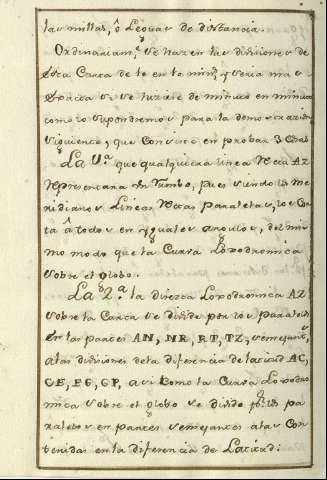 las millas, ô Leguas de distancia.
Ordinariam.te se hazen las divisiones de
esta Carta de 10 en 10 min.s y seria mas
exacta si se hiziese de minuto en minuto
como lo supondremos para la demostrazion
siguiente, que consiste en probar 3 Cosas
La 1.a que qualquiera linea Recta AZ
Representara un Rumbo, pues siendo los Me
ridianos Lineas Rectas Paralelas, los Cor
ta â todos en yguales angulos, del mis
mo modo que la Curva Loxodromica
sobre el Globo.
La 2.a la direcza Loxodromica AZ
sobre la Carta se divide por los Paralelos
En las partes AN, NR, RT, TZ, semejantes
a las divisiones de la diferencia de latitud AC,
CE, EG, GP, asi como la Curva Loxodro
mica sobre el globo se divide por los pa
ralelos en partes semejantes a las Con
tenidas en la diferencia de Latitud: